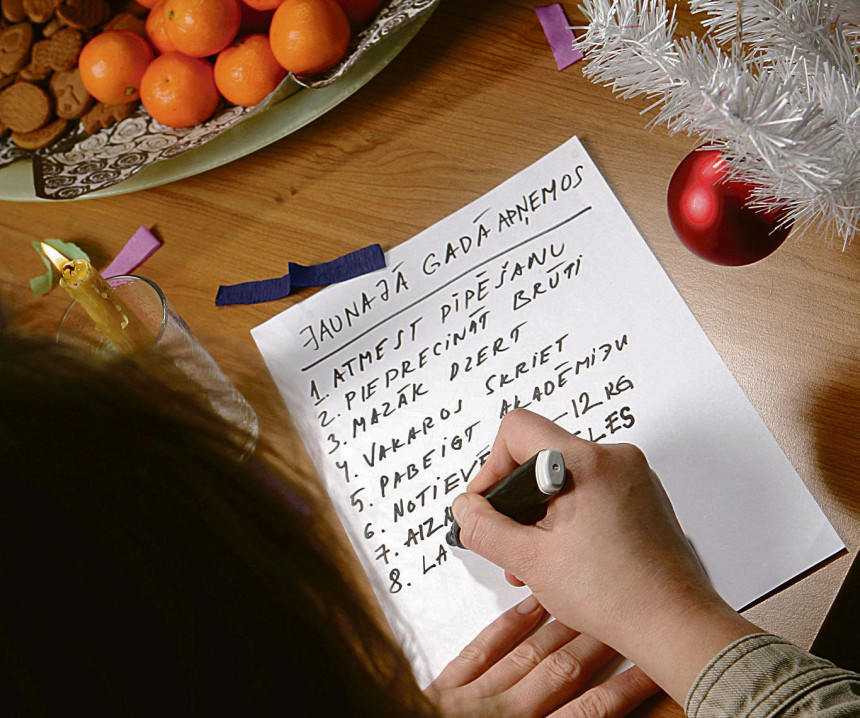 JAUNAJĀ GADĀ APŅEMOS
1. ATMEST PĪPĒŠANU
2. PIEPRECINĀT BRŪTI
3. MAZĀK DZERT
4. VAKAROS SKRIET
5. PABEIGT AKADĒMIJU
6. NOTIEVĒ -12 KG
7. AIZ LES
8. LA